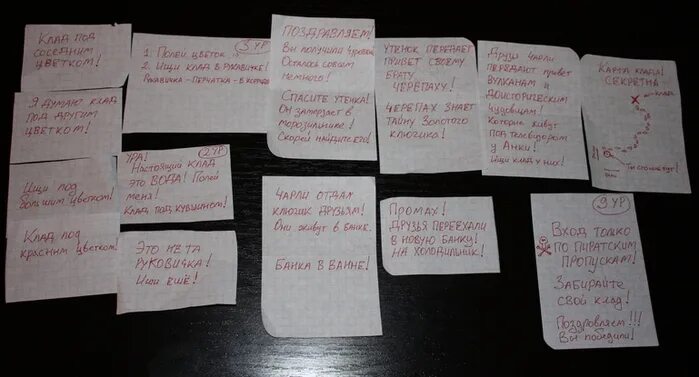 Клад под
соседним
цветком!
Я думаю клад
под другим
цветком!
Ищи под
большим цветком!
Клад под
красним цветком!
3 ур
1. Полей цветок
2. Ищи клад в рукавижке!
Рукавичка - перчатка - в коридоре
2 ур
Ура!
Настоящий клад
это вода! Полей
меня!
Клад под кувшином!
Это не та
руковичка!
Ищи ещё!
Поздравляем!
Вы получили 4 уровень
Осталось совсем
немного!
Спасите утенка!
Он замерзает в
морозильнике!
Скорей найдите его!
Чарли отдал
ключик друзьям!
Они живут в банке.
Банка в ванне!
Утенок передает
привет своему
брату
черепаху!
Черепах знает
тайну золотого
ключика!
Промах!
Друзья переехали
в новую банку!
на холодильник!
Друзья Чарли
передают привет
вулканам и
доисторическим
чудовищам!
Которые живут
под телевизором
у Аньки!
Ищи клад у них!
Карта клада!
Секретна
клад
Ты стоишь тут!
9 ур
Вход только
по пиратским
пропускам!
Забирайте
свой клад!
Поздровляем!!!
Вы победили!